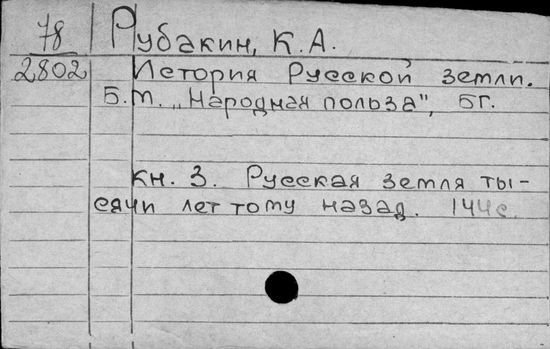 78 Рубакин, К.А.
2802 История Русской земли.
Б.м. „Народная польза", БГ.
кн. 3. Русская земля ты-
сячи лет тому назад. 144с.